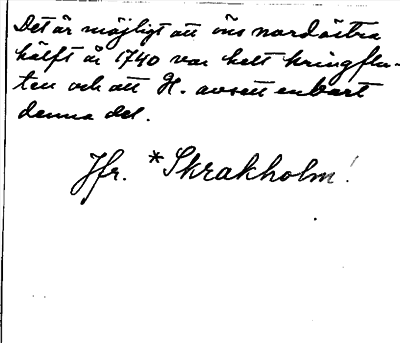 Det är möjligt att öns nordöstra
hälft år 1740 var helt kringflu-
ten och att H. avsett enbart
denna del.
Jfr. *Skrakholm!